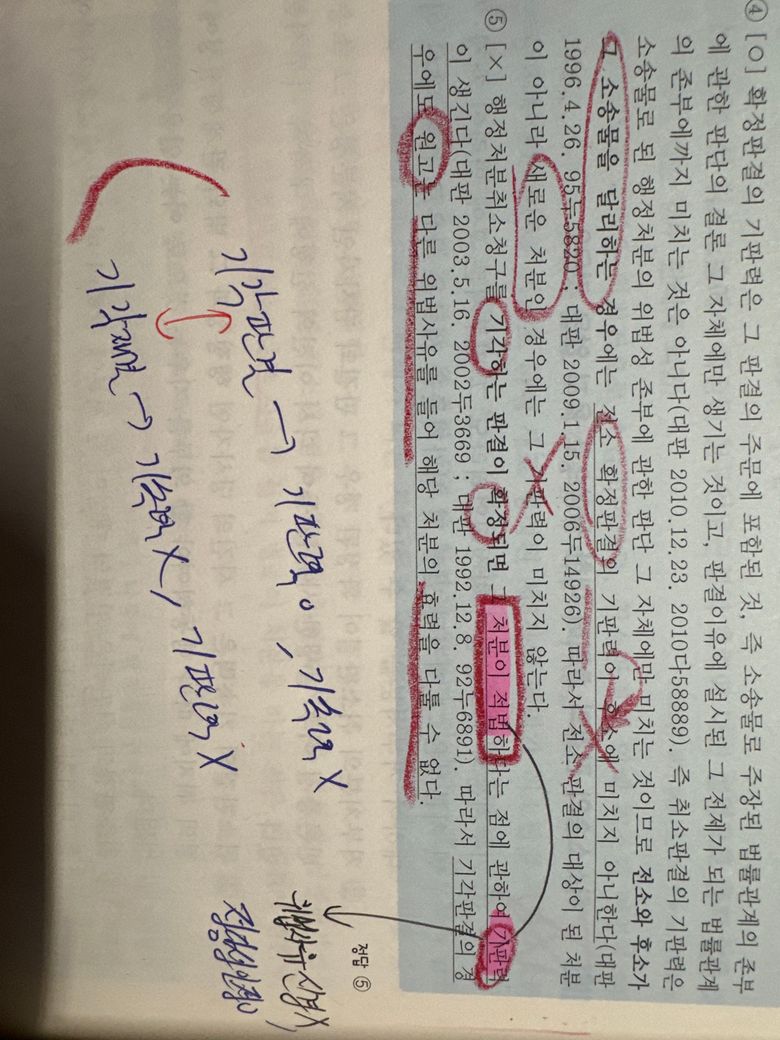 ④ [○] 확정판결의 기판력은 그 판결의 주문에 포함된 것, 즉 소송물로 주장된 법률관계의 존부
에 관한 판단의 결론 그 자체에만 생기는 것이고, 판결이유에 설시된 그 전제가 되는 법률관계
의 존부에까지 미치는 것은 아니다(대판 2010.12.23. 2010다58889). 즉 취소판결의 기판력은
소송물로 된 행정처분의 위법성 존부에 관한 판단 그 자체에만 미치는 것이므로 전소와 후소가
그 소송물을 달리하는 경우에는 전소 확정판결의 기판력이 후소에 미치지 아니한다(대판
1996.4.26. 95누5820 ; 대판 2009.1.15. 2006두14926). 따라서 전소 판결의 대상이 된 처분
이 아니라 새로운 처분인 경우에는 그 기판력이 미치지 않는다.
⑤ [×] 행정처분취소청구를 기각하는 판결이 확정되면 그 처분이 적법하다는 점에 관하여 기판력
이 생긴다(대판 2003.5.16. 2002두3669 ; 대판 1992.12.8. 92누6891). 따라서 기각판결의 경
우에도 원고는 다른 위법사유를 들어 해당 처분의 효력을 다툴 수 없다.
정답 ⑤
기각판결 → 기판력 ○, 기속력 X
기각재결 → 기속력 X, 기판력 X